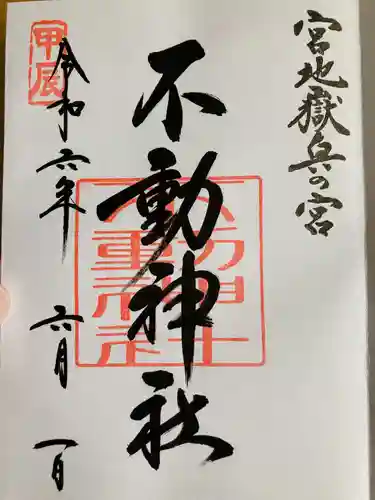 宮地嶽兵の宮
不動神社
令和六年 六月 一日
甲辰
不動神社